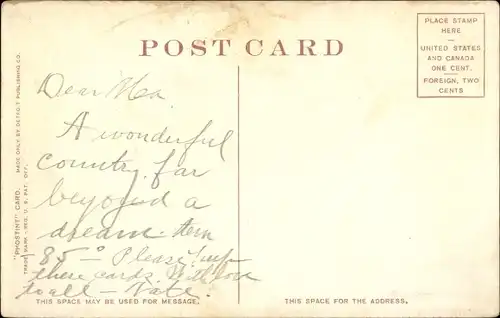 POST CARD
PLACE STAMP
HERE
UNITED STATES
AND CANADA
ONE CENT.
FOREIGN, TWO
CENTS
"PHOSTINT" CARD. MADE ONLY BY DETROIT PUBLISHING CO.
TRADE MARK REG. U. S. PAT. OFF.
Dear Ma.
A wonderful
country. far
beyond a
dream.
85° Please keep
these cards. With love
to all - Nate.
THIS SPACE MAY BE USED FOR MESSAGE.
THIS SPACE FOR THE ADDRESS.